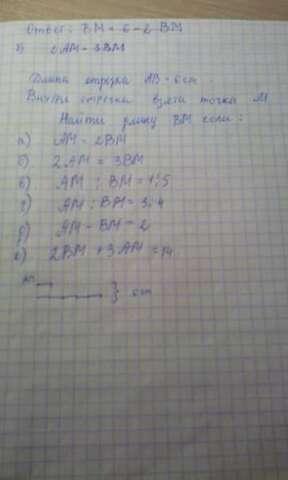 Ответ: BM = 6 - 2 BM
б) 2AM = 3BM
Длина отрезка AB = 6 см.
Внутри отрезка взята точка M
Найти длину BM если:
а) AM = 2BM
б) 2AM = 3BM
в) AM : BM = 1:5
г) AM : BM = 3:4
д) AM - BM = 2
е) 2BM + 3AM = 14
} 6см